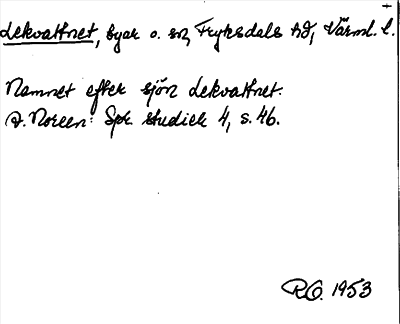 Lekvattnet, byar o. sn, Fryksdals hd, Värml. l.
Namnet efter sjön Lekvattnet.
A. Noreen: Spr. studier 4, s. 46.
R.O. 1953